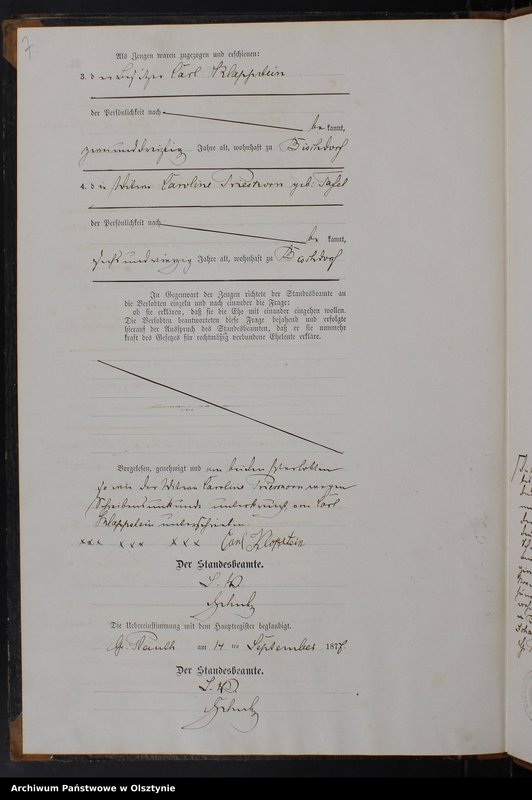 7
Als Zeugen waren zugezogen und erschienen:
3. der Besitzer Carl Klappstein
der Persönlichkeit nach
bekannt,
zweiunddreißig Jahre alt, wohnhaft zu Bischdorf
4. die Witwe Caroline Triesthorn geb:
der Persönlichkeit nach
bekannt,
sechsundvierzig Jahre alt, wohnhaft zu Bischdorf
In Gegenwart der Zeugen richtete der Standesbeamte an
die Verlobten einzeln und nach einander die Frage:
ob sie erklären, daß sie die Ehe mit einander eingehen wollen.
Die Verlobten beantworteten diese Frage bejahend und erfolgte
hierauf der Ausspruch des Standesbeamten, daß er sie nunmehr
kraft des Gesetzes für rechtmäßig verbundene Eheleute erkläre.
Vorgelesen, genehmigt und von beiden Verlobten
so wie der Witwe Caroline wegen
Schreibensunkunde unterkreuzt von Carl
Klappstein unterschrieben.
xxx xxx xxx Carl Klopstein
Der Standesbeamte.
Schulz
Die Uebereinstimmung mit dem Hauptregister beglaubigt.
Gr. am 14 ten September 187
Der Standesbeamte.
Schulz
Archiwum Państwowe w Olsztynie